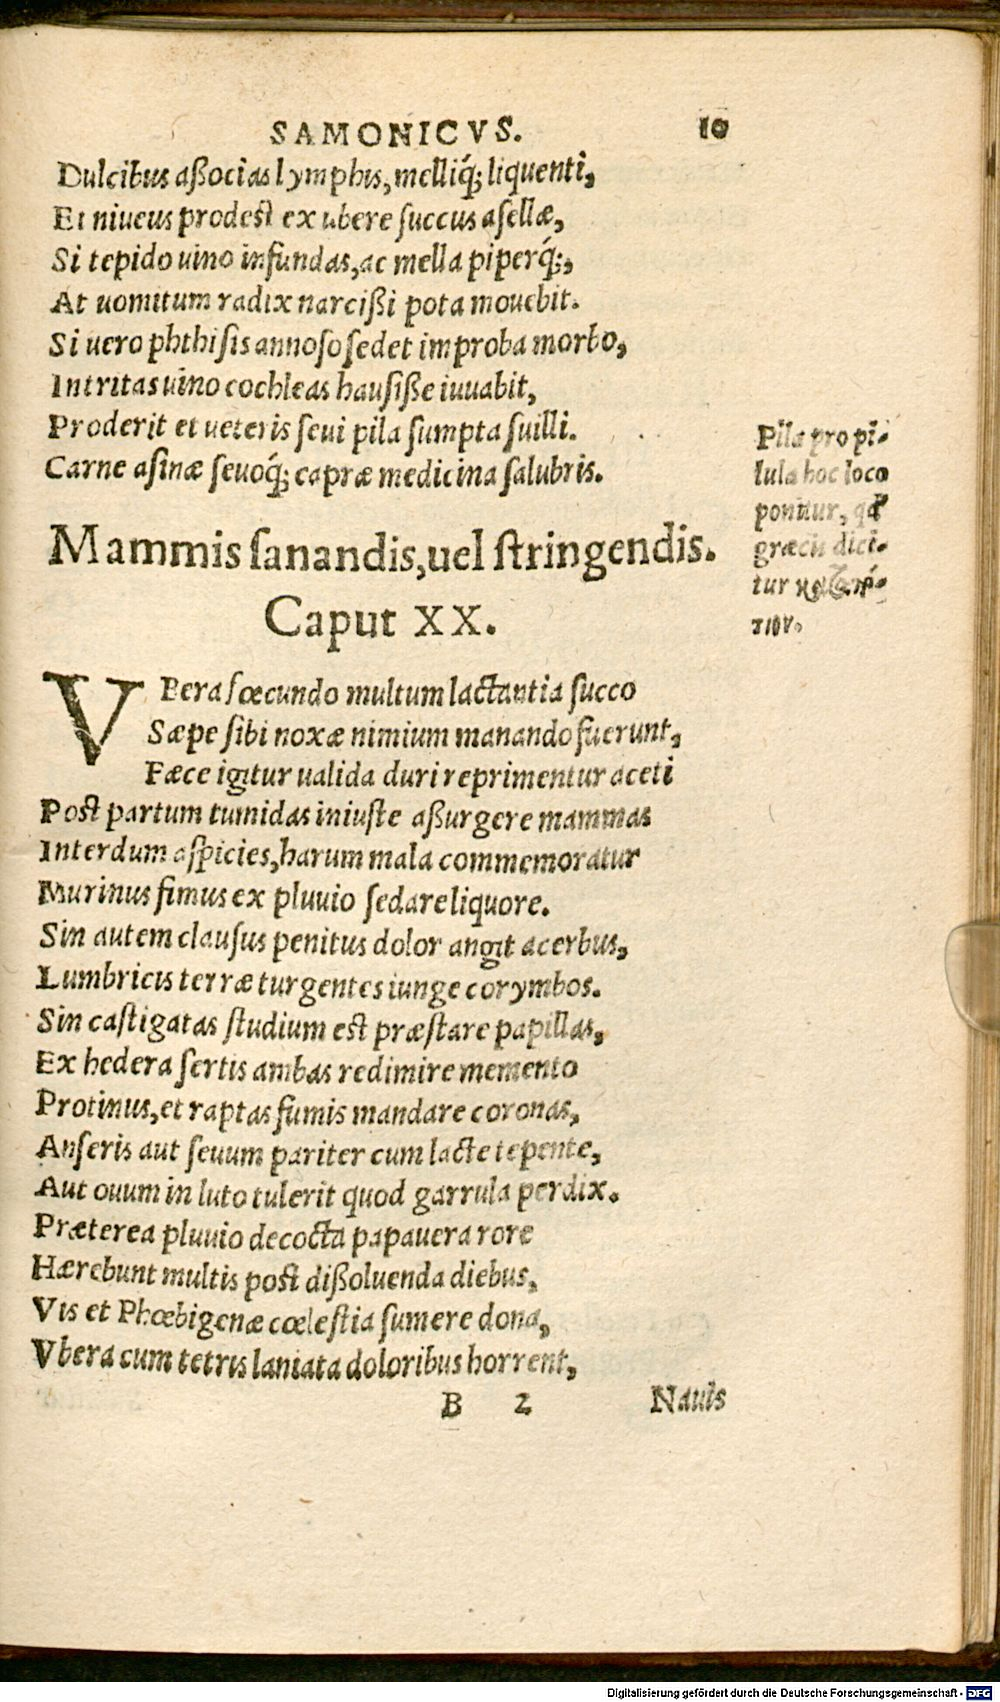 SAMONICVS. 10
Dulcibus aßocias lymphis, melliq́; liquenti,
Et niueus prodest ex ubere ſuccus aſellæ,
Si tepido uino infundas, ac mella piperq́;,
At uomitum radix narcißi pota mouebit.
Si uero phthiſis annoſo ſedet improba morbo,
Intritas uino cochleas hauſiße iuuabit,
Proderit et ueteris ſeui pila ſumpta ſuilli.
Carne aſinæ ſeuoq́; capræ medicina ſalubris.
Pila pro pi-
lula hoc loco
ponitur, qđ
græcis dici-
tur
τιον.
Mammis ſanandis, uel ſtringendis.
Caput XX.
VBera fœcundo multum lactantia ſucco
Sæpe ſibi noxæ nimium manando fuerunt,
Fæce igitur ualida duri reprimentur aceti
Post partum tumidas iniuſte aßurgere mammas
Interdum aſpicies, harum mala commemoratur
Murinus fimus ex pluuio ſedare liquore.
Sin autem clauſus penitus dolor angit acerbus,
Lumbricis terræ turgentes iunge corymbos.
Sin caſtigatas ſtudium est præſtare papillas,
Ex hedera ſertis ambas redimire memento
Protinus, et raptas fumis mandare coronas,
Anſeris aut ſeuum pariter cum lacte tepente,
Aut ouum in luto tulerit quod garrula perdix.
Præterea pluuio decocta papauera rore
Hærebunt multis post dißoluenda diebus,
Vis et Phœbigenæ cœleſtia ſumere dona,
Vbera cum tetris laniata doloribus horrent,
B 2 Nauis
Digitalisierung gefördert durch die Deutsche Forschungsgemeinschaft - DFG